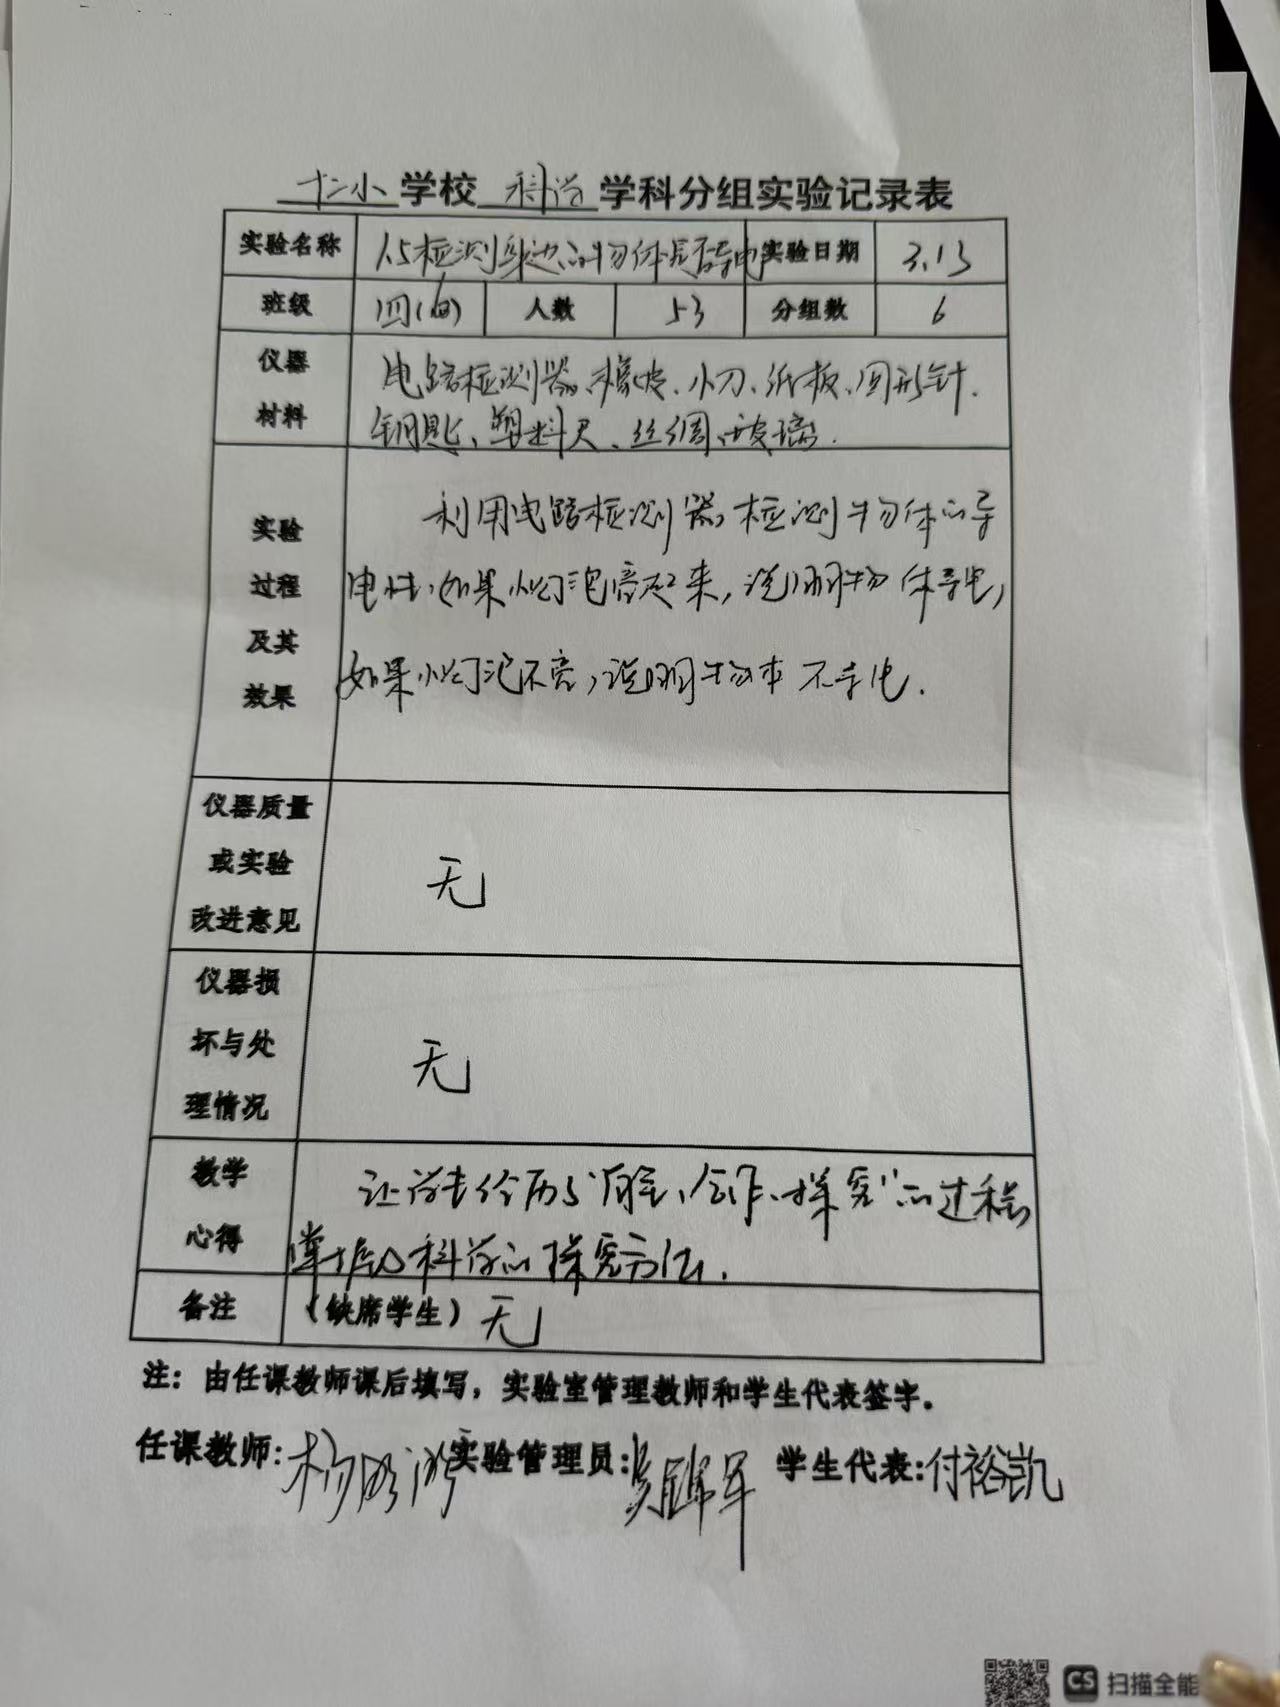 十二小学校 科学 学科分组实验记录表
实验名称 1.5检测身边的物体是否导电 实验日期 3.13
班级 四(6) 人数 53 分组数 6
仪器材料
电路检测器、橡皮、小刀、纸板、回形针、
钥匙、塑料尺、丝绸、玻璃.
实验过程及其效果
利用电路检测器,检测物体的导
电性,如果小灯泡亮起来,说明物体导电,
如果小灯泡不亮,说明物体不导电.
仪器质量或实验改进意见
无
仪器损坏与处理情况
无
教学心得
让学生经历了"自主、合作、探究"的过程
掌握了科学的探究方法.
备注 (缺席学生) 无
注:由任课教师课后填写,实验室管理教师和学生代表签字。
任课教师: 杨 实验管理员: 军 学生代表:付裕凯
CS 扫描全能